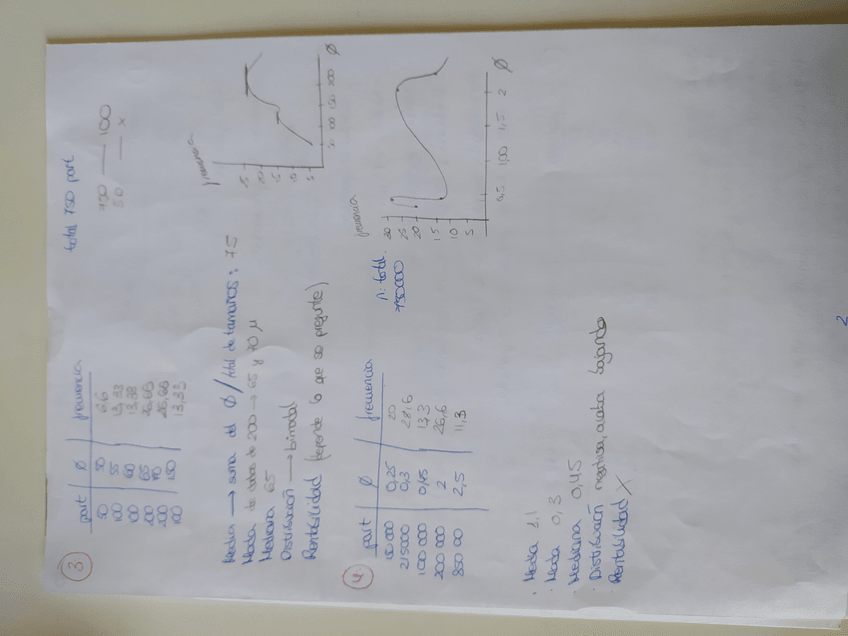 3
total 750 part
part Ø frecuencia
50 50 6,6
100 55 13,33
100 60 13,33
200 65 26,66
200 70 26,66
100 150 13,33
750 — 100
50 — x
frecuencia
25
20
15
10
5
50 100 150 200 Ø
Media → suma del Ø / total de tamaños: 75
Moda: de 200 → 65 y 70 µ
Mediana 65
Distribución → bimodal
Rentabilidad (depende lo que so pregunte)
4.
part Ø frecuencia
150 000 0,25 20
215000 0,3 28,6
100 000 0,45 13,3
200 000 2 26,6
850 00 2,5 11,3
n: total
750000
frecuencia
30
25
20
15
10
5
0,5 1,00 1,5 2 Ø
· Media 1.1
· Moda 0,3
· Mediana 0,45
· Distribución negativa, acaba bajando
· Rentabilidad X
2